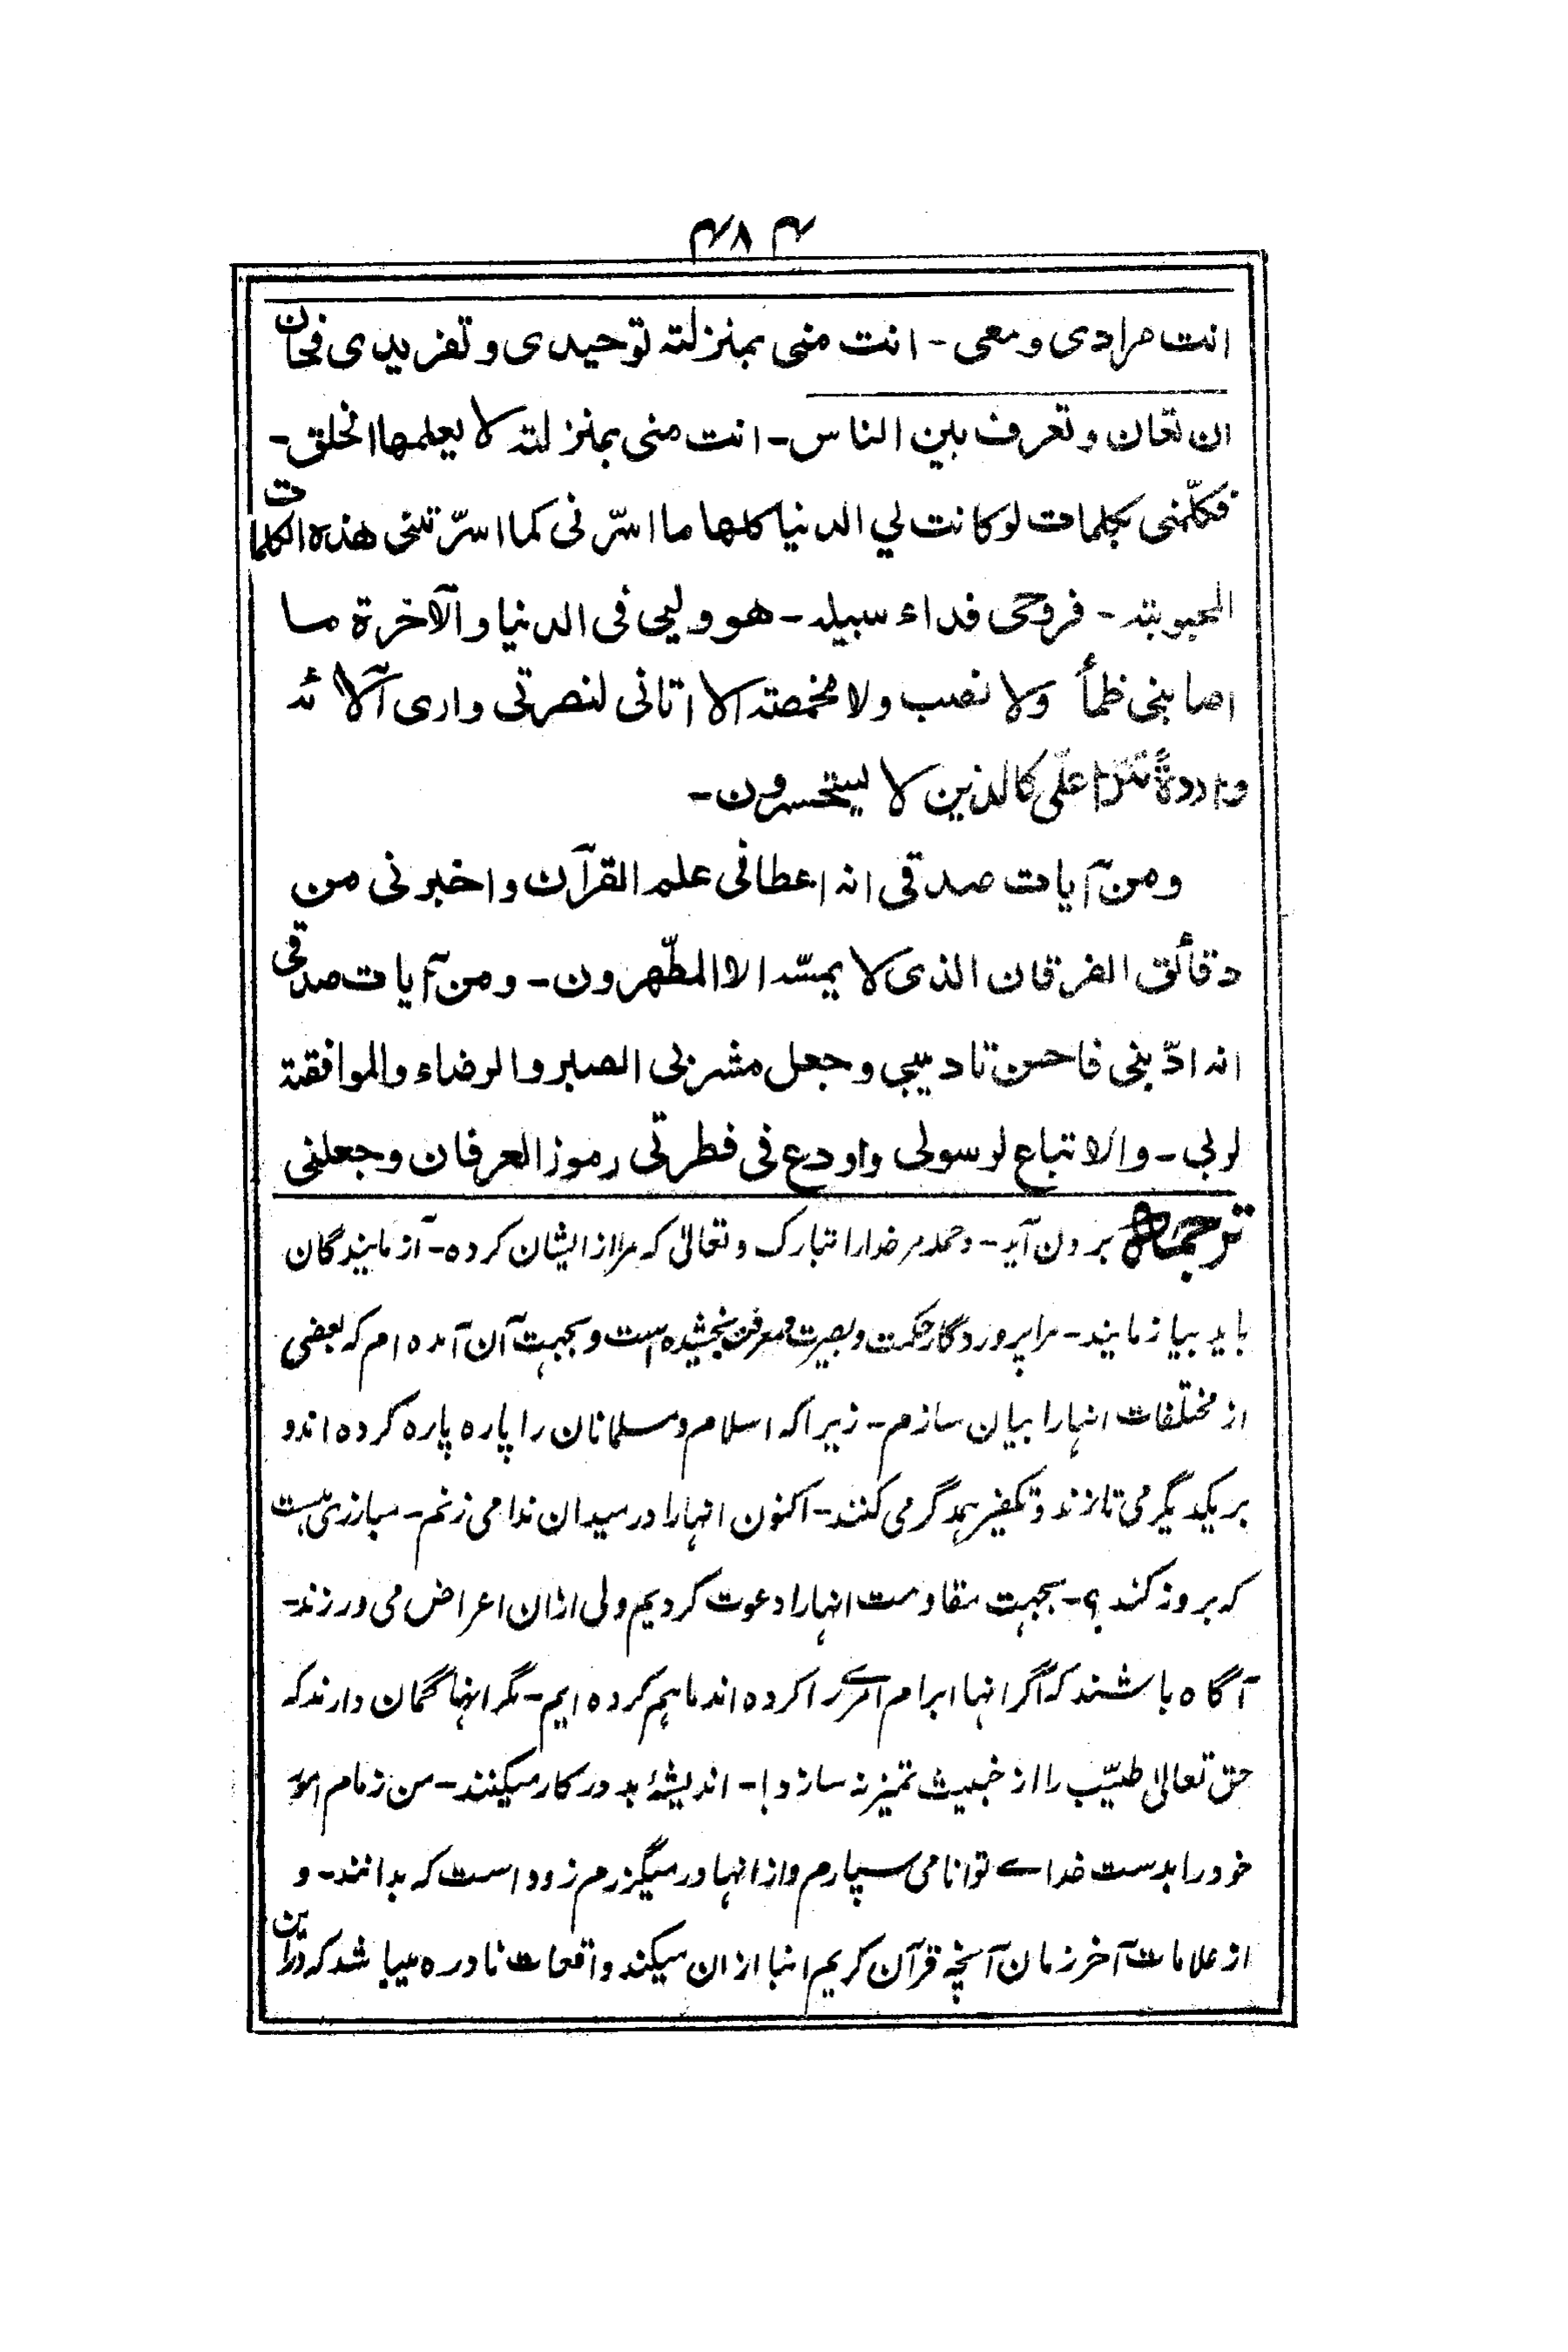 ۴۸۴
انت مرادی ومعی - انت منی بمنزلة توحیدی وتفریدی فحان
ان تعان وتعرف بین الناس - انت منی بمنزلة لا یعلمها الخلق -
فکلّمنی بکلمات لو کانت لی الدنیا کلها ما اسرّنی کما اسرّتنی هذه الکلمات
المحبوبة - فروحی فداء سبیله - هو ولیی فی الدنیا والآخرة ما
اصابنی ظمأ ولا نصب ولا مخمصة الا اتانی لنصرتی واری آلائه
واردةً تترًا علّی کالذین لا یستحسرون -
ومن آیات صدقی انه اعطانی علم القرآن واخبرنی من
دقائق الفرقان الذی لا یمسّه الا المطّهرون - ومن آیات صدقی
انه ادّبنی فاحسن تادیبی وجعل مشربی الصبر والرضاء والموافقة
لربی - والاتباع لرسولی واودع فی فطرتی رموز العرفان وجعلنی
ترجمه برون آید - وحمد مر خدارا تبارک وتعالیٰ که مرا از ایشان کرده - آزمایندگان
باید بیازمایند - مرا پروردگار حکمت وبصیرت ومعرفت بخشیده است وبجهت آن آمده ام که بعضی
از مختلفات انها را بیان سازم - زیرا که اسلام ومسلمانان را پاره پاره کرده اند و
بر یکدیگر می تازند وتکفیر همدگر می کنند - اکنون انها را در میدان ندا می زنم - مبارزی هست
که بروز کند؟ - بجهت مقاومت انها را دعوت کردیم ولی ازان اعراض می ورزند -
آگاه باشند که اگر انها ابرام امرے را کرده اند ما هم کرده ایم - مگر انها گمان دارند که
حق تعالیٰ طیّب را از خبیث تمیز نه سازد! - اندیشهٔ بد در کار میکنند - من زمام امور
خود را بدست خداے توانا می سپارم واز انها درمیگزرم زود است که بدانند - و
از علامات آخر زمان آنچه قرآن کریم انبا ازان میکند واقعات نادره میباشد که دراین